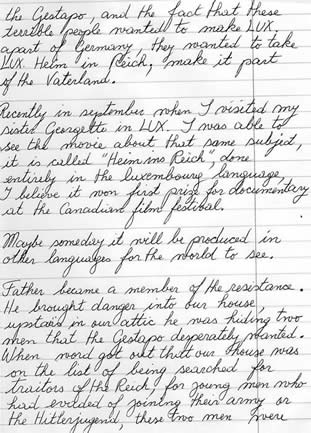 the Gestapo, and the fact that these
terrible people wanted to make LUX
apart of Germany, they wanted to take
LUX Heim in Reich, make it part
of the Vaterland.
Recently in september when I visited my
sister Georgette in LUX. I was able to
see the movie about that same subject,
it is called "Heim ins Reich", done
entirely in the luxembourg language,
I believe it won first prize for documentary
at the Canadian film festival.
Maybe someday it will be produced in
other languages for the world to see.
Father became a member of the resistance.
He brought danger into our house,
upstairs in our attic he was hiding two
men that the Gestapo desperately wanted.
When word got out that our house was
on the list of being searched for
traitors of the Reich for young men who
had evaded of joining their army or
the Hitlerjugend, these two men were